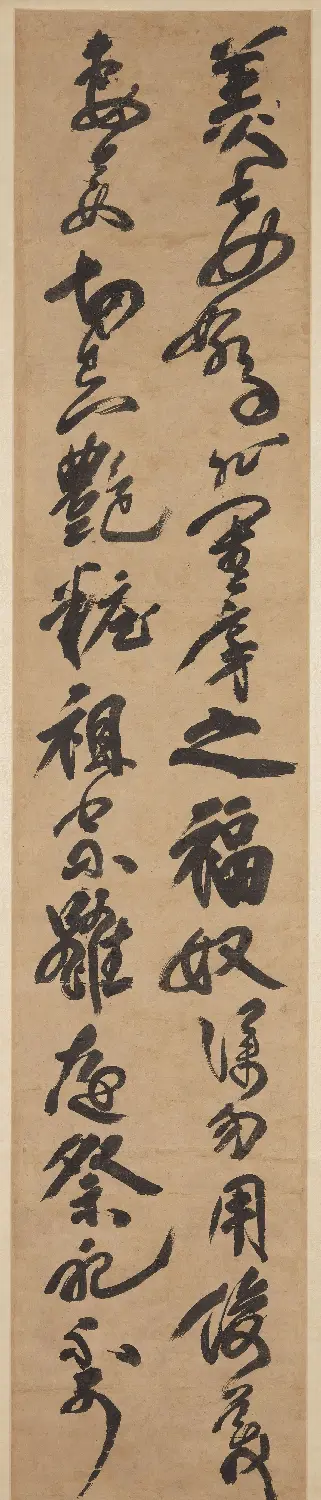 美妾嬌非閨房之福奴僕勿用俊美
妻妾切忌艷粧祖宗雖遠祭祀不可